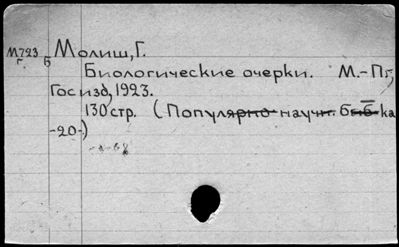 М723 Молиш, Г.
г. Б
Биологические очерки. М.-Пг,
Госизд, 1923.
130 стр. (Популярно-научн. б-ка
-20-)